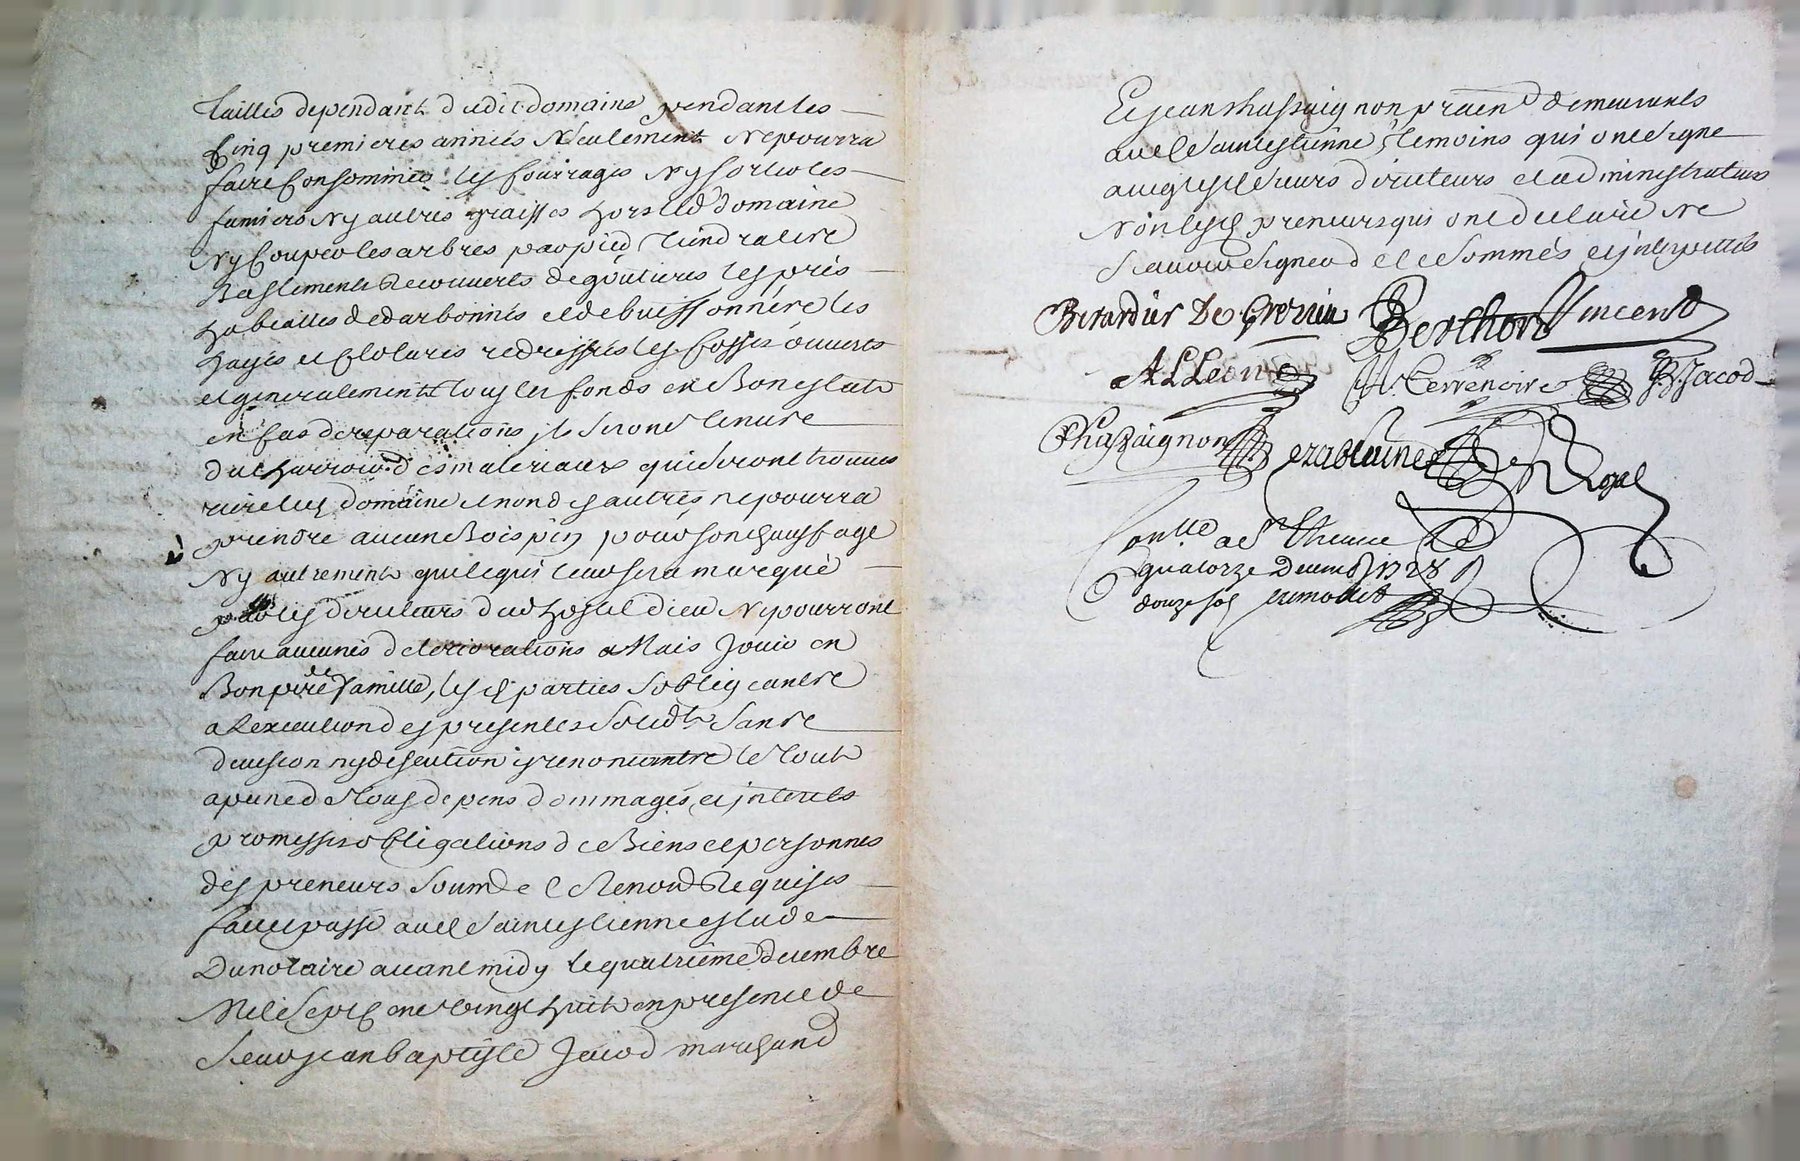 tailles dependant dudit domaine pendant les
cinq premieres années seulement ne pourra
faire consommer les fourrages ny sortir les
fumiers ny autres graisses hors led domaine
ny couper les arbres par pied tiendra les
bastiments recouverts de goutieres les prés
et de buissonniere les
hayes et clotures redressées les fossés ouverts
et generalement tous les fonds en bon estat
en cas de reparations ils seront tenus
du charroir des materiaux qui seront trouvés
riere led domaine et non des autres ne pourra
prendre aucun bois pin pour son chauffage
ny autrement que le qui leur sera marqué
par les directeurs dud hostel dieu ny pourront
faire aucunes deteriorations mais jouir en
bon pere de famille, les d parties sobligeantes
a lexecution des presentes solidt sans
division ny discution y renoncantes le tout
a peine de tous depens dommages et jnterets
promesses obligations de biens et personnes
des preneurs soum et renon requises
fait et passé aud saint estienne estude
du notaire avant midy le quatrième decembre
mil sept cent vingt huit en presence de
sieur jean baptiste Jacod marchand
et jean chassaignon praen demeurants
aud saint estienne temoins qui ont signe
avec lesd sieurs directeurs et administrateurs
non lesd preneurs qui ont declaré ne
scavoir signer de ce sommés et jnterpellés
Berardier De Grezieu Berthon Vincent
A L Leon M. Terrenoire J.B. Jacod
Chassaignon ezablaine Rogal
Conllé a St Etienne le
quatorze Decemb 1728
douze sol